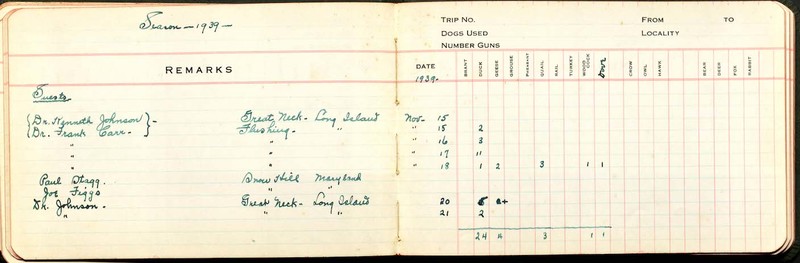 Season - 1939 -
REMARKS
Guests
{ Dr. Kenneth Johnson } - Great Neck - Long Island
Dr. Frank Carr. - Flushing - "
"
"
"
Paul Stagg. Snow Hill Maryland
Joe Figgs " "
Dr. Johnson - Great Neck - Long Island
" " "
TRIP NO. FROM TO
DOGS USED LOCALITY
NUMBER GUNS
DATE BRANT DUCK GEESE GROUSE PHEASANT QUAIL RAIL TURKEY WOOD COCK Dove CROW OWL HAWK BEAR DEER FOX RABBIT
1939-
Nov- 15
" 15 2
" 16 3
" 17 11
" 18 1 2 3 1 1
20
21 2
24 3 1 1